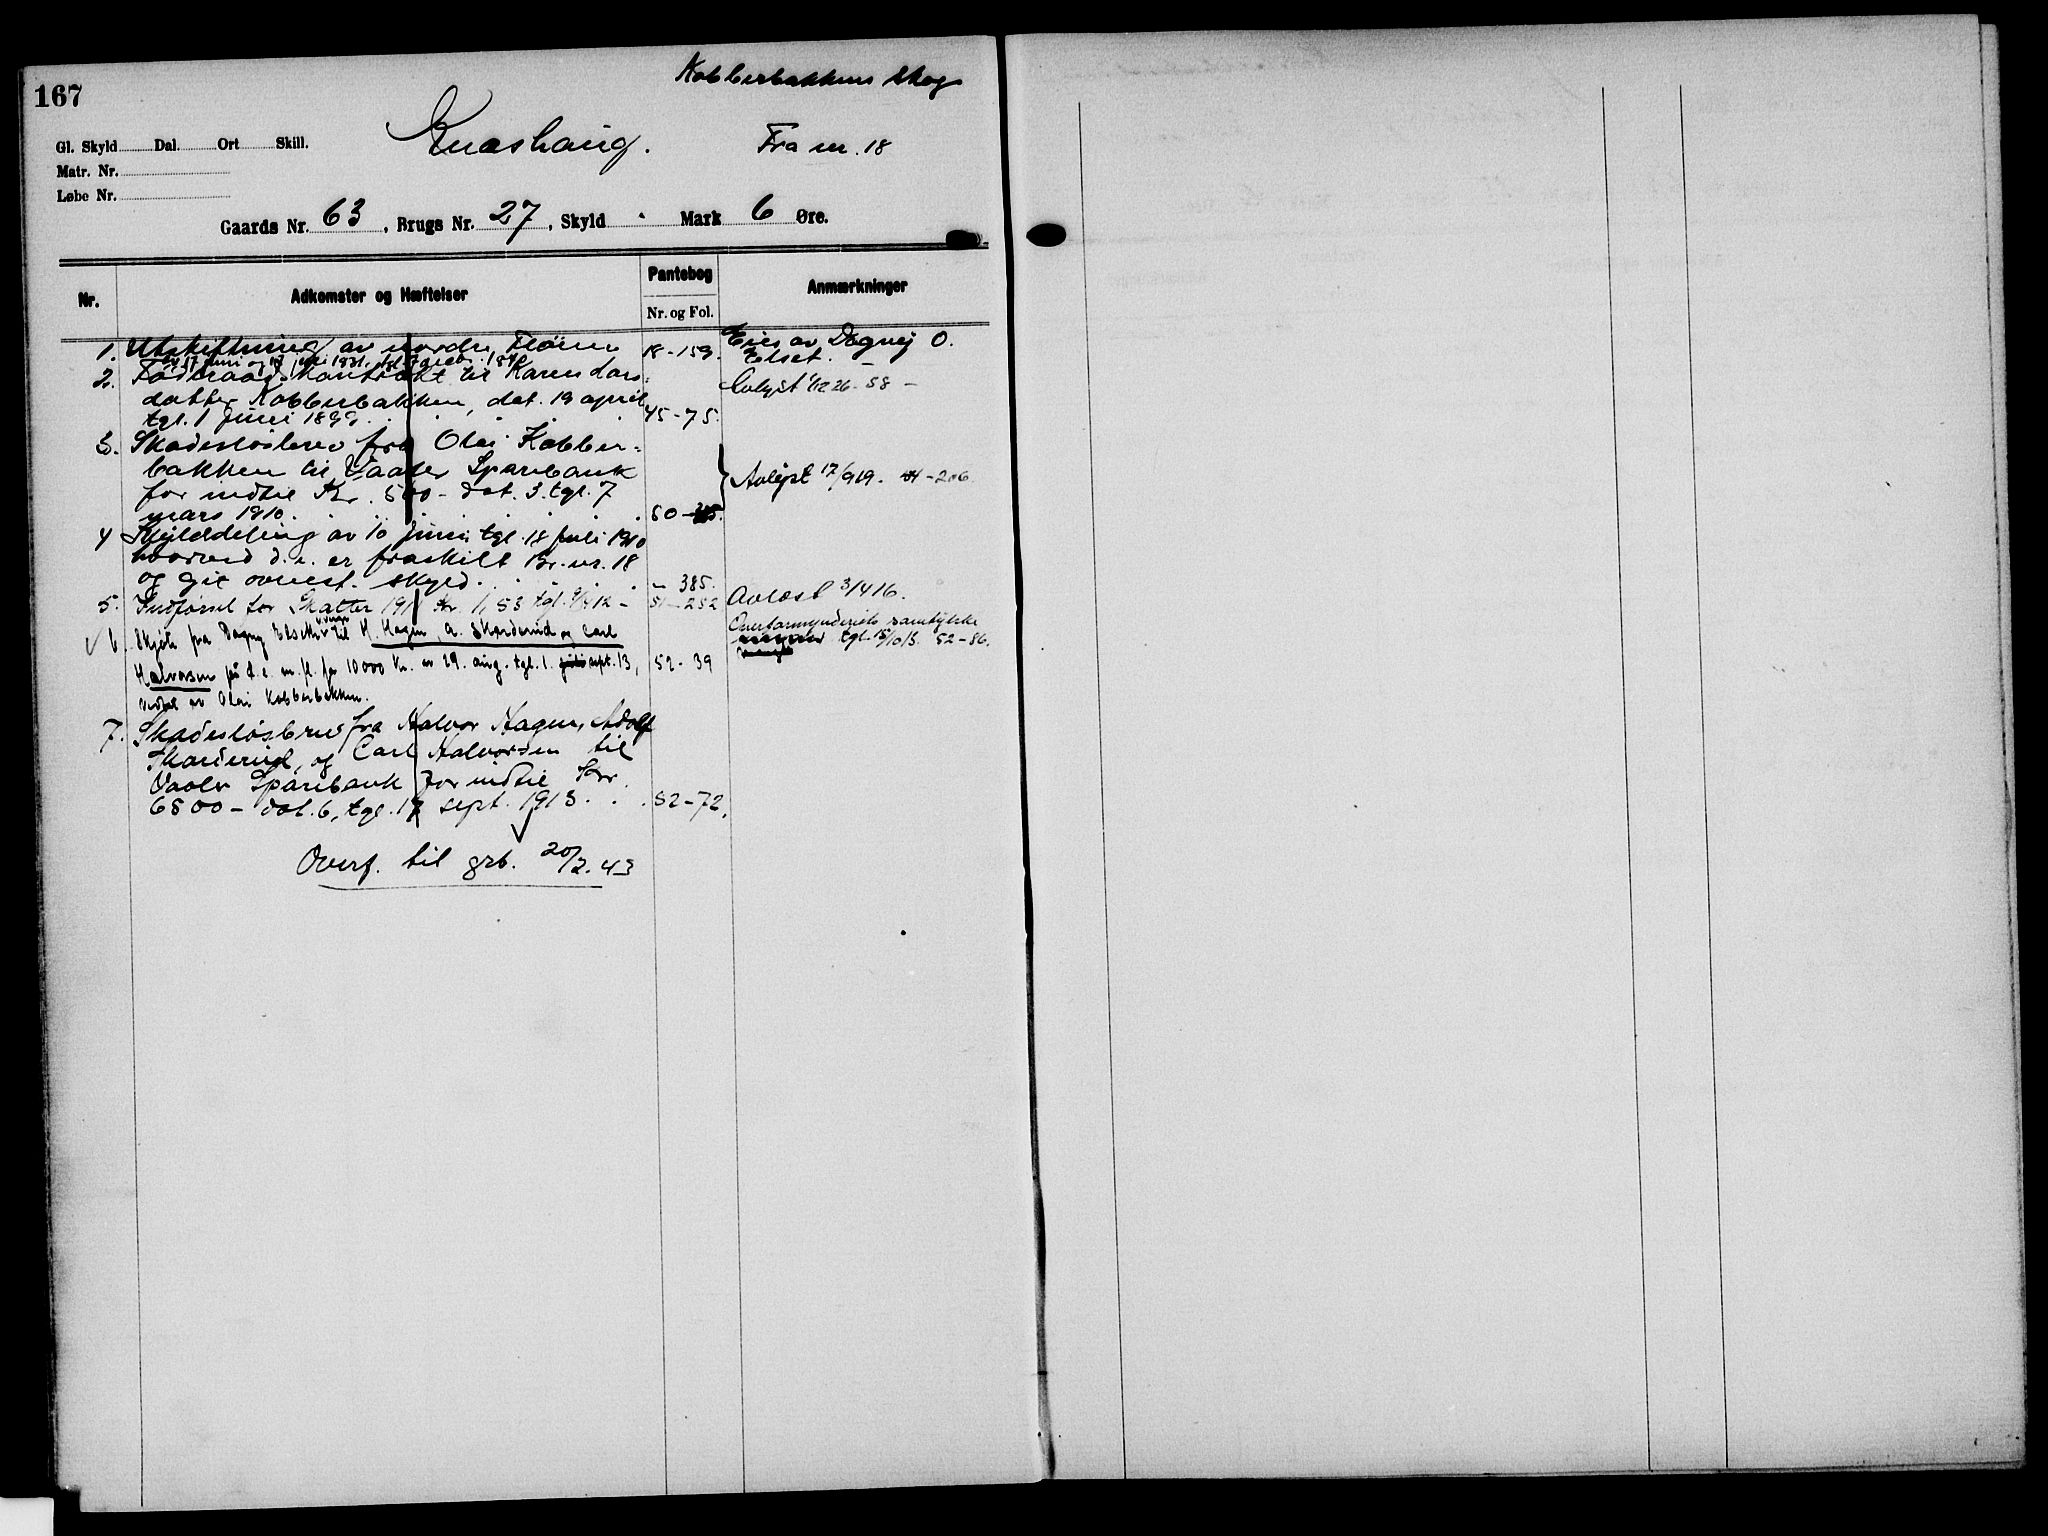 167
Kobberbakkens skog
Gl. Skyld Dal. Ort Skill.
Fra nr. 18
Matr. Nr.
Løbe Nr.
Gaards Nr. 63, Brugs Nr. 27, Skyld - Mark 6 Øre.
Nr. Adkomster og Hæftelser Pantebog Nr. og Fol. Anmærkninger
1. Utskiftning av nordre 18-159. Eies av Dagny O. Elset.
av 17 juni og 1831, tgl.
2. Føderaadskontrakt til Karen Lars- Avlyst 4/12 26 - 58 -
datter Kobberbakken, dat. 19 april
tgl. 1 juni 1899. 45-75.
3. Skadesløsbrev fra Olai Kobber-
bakken til Vaaler Sparebank Avlyst 17/9 19. - 206
for indtil Kr. 500 - dat. 3. tgl. 7
mars 1910. 50-
4 Skylddeling av 10 juni tgl. 18 juli 1910
hvorved d. e. er fraskilt Br. nr. 18
og git ovenst. skyld. - 385.
5. Indførsel for Skatter 191 Kr. 1,53 tgl. 12 - 51-252 Avløst 3/4 16.
6. Skjøte fra Dagny til H. Hagen, A. Skarderud og Carl Overformynderiets samtykke
tgl. 15/10 13. 52-86.
Halvorsen på d. e. m. fl. for 10000 Kr. av 29. aug. tgl. 1. sept. 13, 52-39
vedtat av Olai Kobberbakken.
7. Skadesløsbrev fra Halvor Hagen, Adolf
Skarderud, og Carl Halvorsen til
Vaaler Sparebank for indtil Kr.
6500 - dat. 6, tgl. 17 sept. 1913. 52-72.
Overf. til grb. 20/2. 43